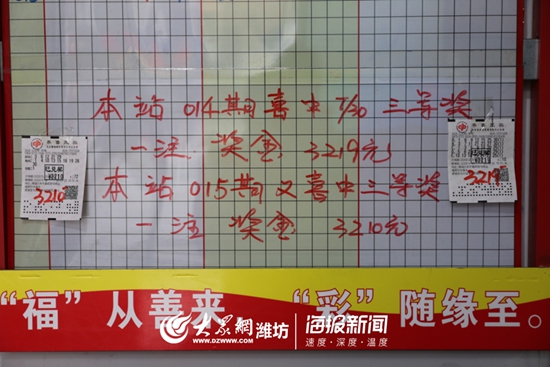 本站014期喜中7/30三等奖
一注 奖金 3219元
本站015期又喜中三等奖
一注 奖金 3210元
3210
3219
“福”从善来 “彩”随缘至。
大众网潍坊
WWW.DZWWW.COM
海报新闻
速度·深度·温度